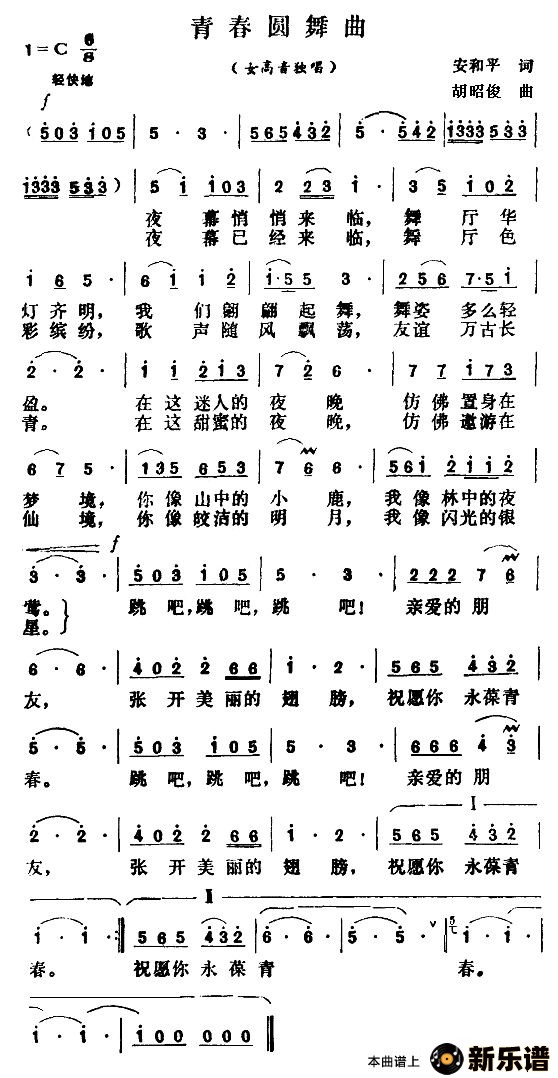 青春圆舞曲
1=C 6/8
（女高音独唱）
安和平 词
轻快地
胡昭俊 曲
f
（503 105 | 5·3· | 565432 | 5·542 | 1333533 |
1333533） | 51 103 | 2 23 1· | 35 102 |
夜幕悄悄来临，舞厅华
夜幕已经来临，舞厅色
1 65· | 61 12 | 1·55 3· | 256 7·51 |
灯齐明，我们翩翩起舞，舞姿多么轻
彩缤纷，歌声随风飘荡，友谊万古长
2·2· | 11 213 | 726· | 77 173 |
盈。在这迷人的夜晚 仿佛置身在
青。在这甜蜜的夜晚，仿佛遨游在
675· | 135 653 | 7 6· | 561 2112 |
梦境，你像山中的小鹿，我像林中的夜
仙境，你像皎洁的明月，我像闪光的银
f
3·3· | 503 105 | 5·3· | 222 76 |
莺。跳吧，跳吧，跳吧！亲爱的朋
星。}
6·6· | 402 266 | 1·2· | 565 432 |
友，张开美丽的翅膀，祝愿你永葆青
5·5· | 503 105 | 5·3· | 666 43 |
春。跳吧，跳吧，跳吧！亲爱的朋
I
2·2· | 402 266 | 1·2· | 565 432 |
友，张开美丽的翅膀，祝愿你永葆青
II
1·1· :| 565 432 | 5·5· | 5·5· V | 1·1· |
春。祝愿你永葆青 春。
1·1· | 100 000 ‖
本曲谱上 新乐谱